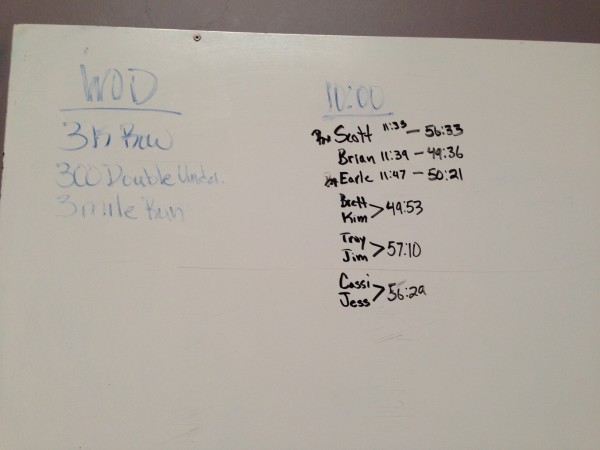 WOD
3K Row
300 Double Under.
3 mile Run
10:00
Scott 11:33 — 56:33
Brian 11:39 — 49:36
Earle 11:47 — 50:21
Brett
Kim > 49:53
Troy
Jim > 57:10
Cassi
Jess > 56:29